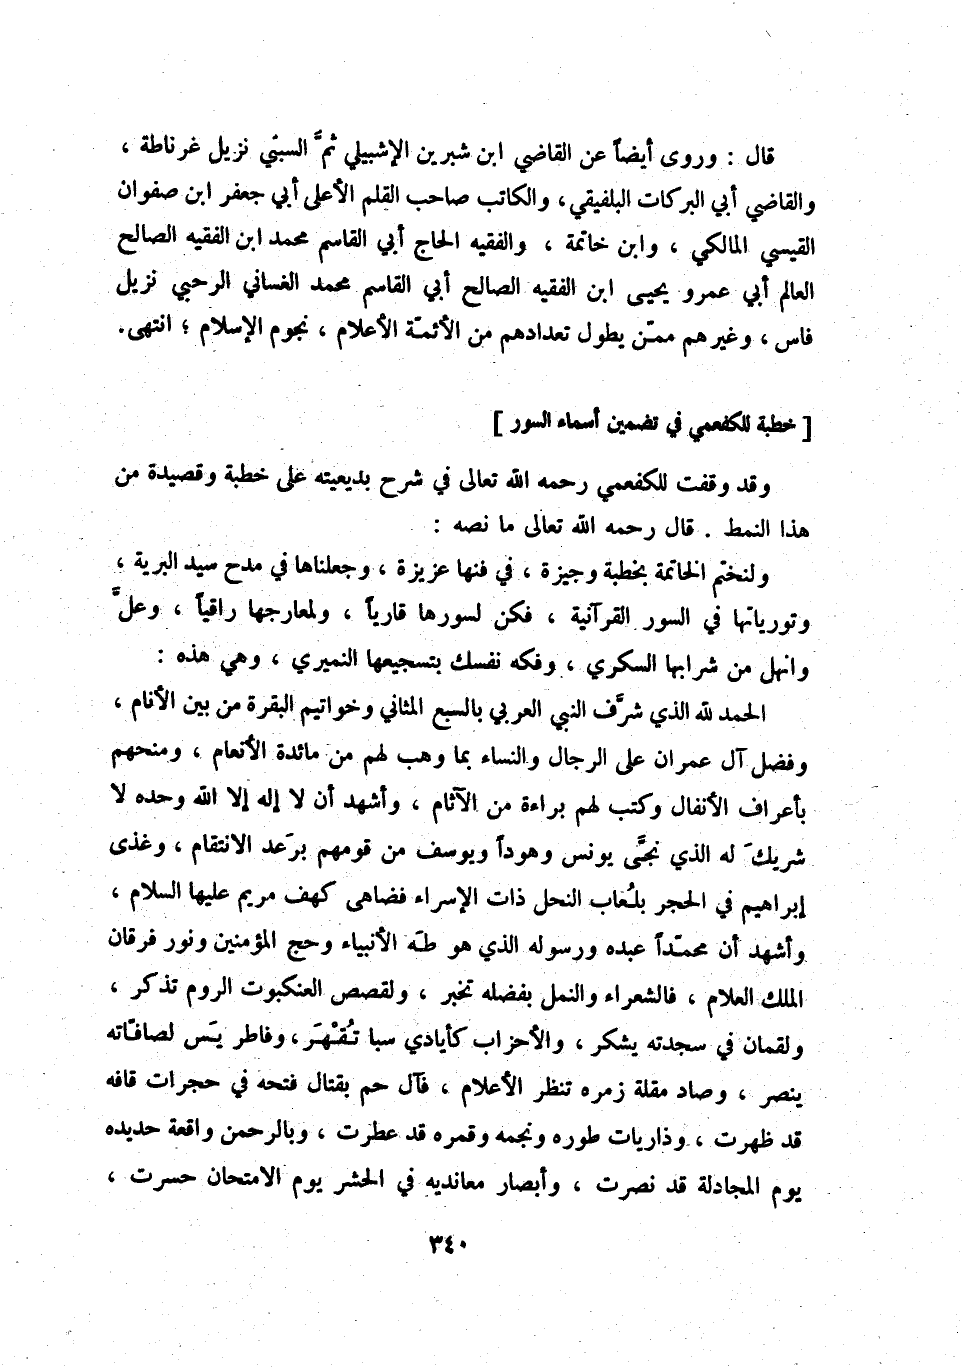 قال : وروى أيضاً عن القاضي ابن شبرين الإشبيلي ثمَّ السبتي نزيل غرناطة ،
والقاضي أبي البركات البلفيقي، والكاتب صاحب القلم الأعلى أبي جعفر ابن صفوان
القيسي المالكي ، وابن خاتمة ، والفقيه الحاج أبي القاسم محمد ابن الفقيه الصالح
العالم أبي عمرو يحيى ابن الفقيه الصالح أبي القاسم محمد الغساني الرحبي نزيل
فاس ، وغيرهم ممّن يطول تعدادهم من الأئمّة الأعلام ، نجوم الإسلام ؛ انتهى.
[ خطبة للكفعمي في تضمين أسماء السور ]
وقد وقفت للكفعمي رحمه الله تعالى في شرح بديعيته على خطبة وقصيدة من
هذا النمط . قال رحمه الله تعالى ما نصه :
ولنختم الخاتمة بخطبة وجيزة ، في فنها عزيزة ، وجعلناها في مدح سيد البرية ،
وتورياتها في السور القرآنية ، فكن لسورها قارياً ، ولمعارجها راقياً ، وعلَّ
وانهل من شرابها السكري ، وفكه نفسك بتسجيعها النميري ، وهي هذه :
الحمد لله الذي شرَّف النبي العربي بالسبع المثاني وخواتيم البقرة من بين الأنام ،
وفضل آل عمران على الرجال والنساء بما وهب لهم من مائدة الأنعام ، ومنحهم
بأعراف الأنفال وكتب لهم براءة من الآثام ، وأشهد أن لا إله إلا الله وحده لا
شريكَ له الذي نجَّى يونس وهوداً ويوسف من قومهم برَعد الانتقام ، وغذى
إبراهيم في الحجر بلُعاب النحل ذات الإسراء فضاهى كهف مريم عليها السلام ،
وأشهد أن محمّداً عبده ورسوله الذي هو طه الأنبياء وحج المؤمنين ونور فرقان
الملك العلام ، فالشعراء والنمل بفضله تخبر ، ولقصص العنكبوت الروم تذكر ،
ولقمان في سجدته يشكر ، والأحزاب كأيادي سبا تُقْهَر، وفاطر يَس لصافّاته
ينصر ، وصاد مقلة زمره تنظر الأعلام ، فآل حم بقتال فتحه في حجرات قافه
قد ظهرت ، وذاريات طوره ونجمه وقمره قد عطرت ، وبالرحمن واقعة حديده
يوم المجادلة قد نصرت ، وأبصار معانديه في الحشر يوم الامتحان حسرت ،
٣٤٠